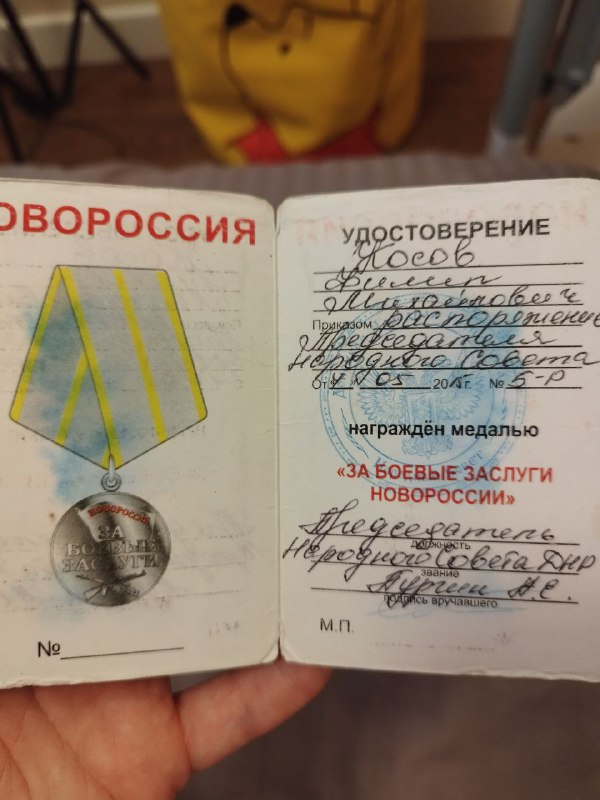 НОВОРОССИЯ
НОВОРОССИЯ
ЗА
БОЕВЫЕ
ЗАСЛУГИ
№
УДОСТОВЕРЕНИЕ
Косов
Михайлович
Приказом распоряжение
Председателя
Народного Совета
От 05 2015г. № 5-р
награждён медалью
«ЗА БОЕВЫЕ ЗАСЛУГИ
НОВОРОССИИ»
Председатель
должность
Народного Совета ДНР
звание
А.Е.
подпись вручавшего
М.П.